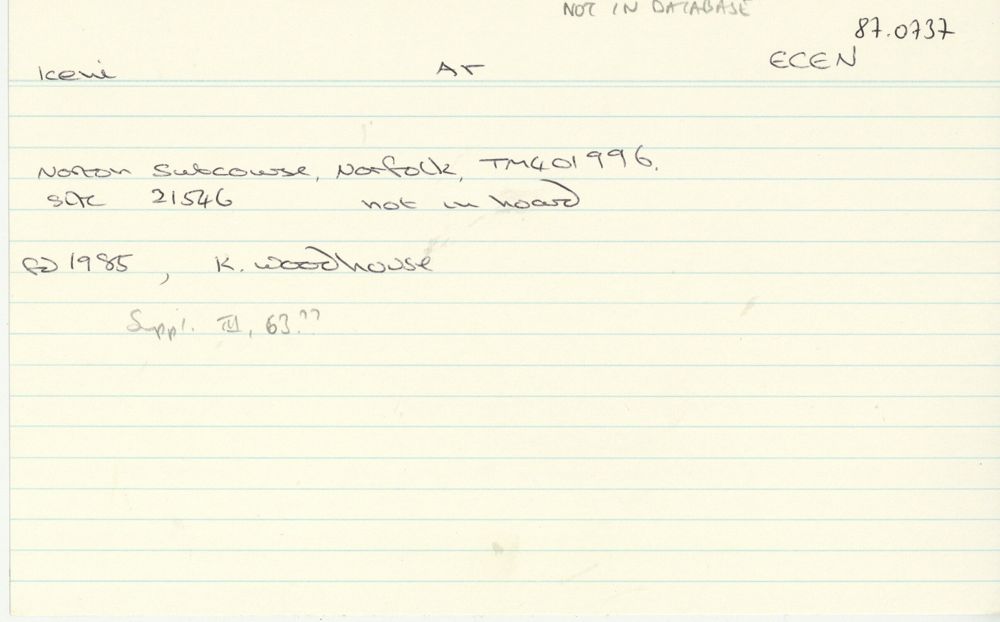 NOT IN DATABASE
87.0737
Iceni AR ECEN
Norton Subcourse, Norfolk, TM401996.
site 21546 not in hoard
fd 1985, K. Woodhouse
Suppl. III, 63.??